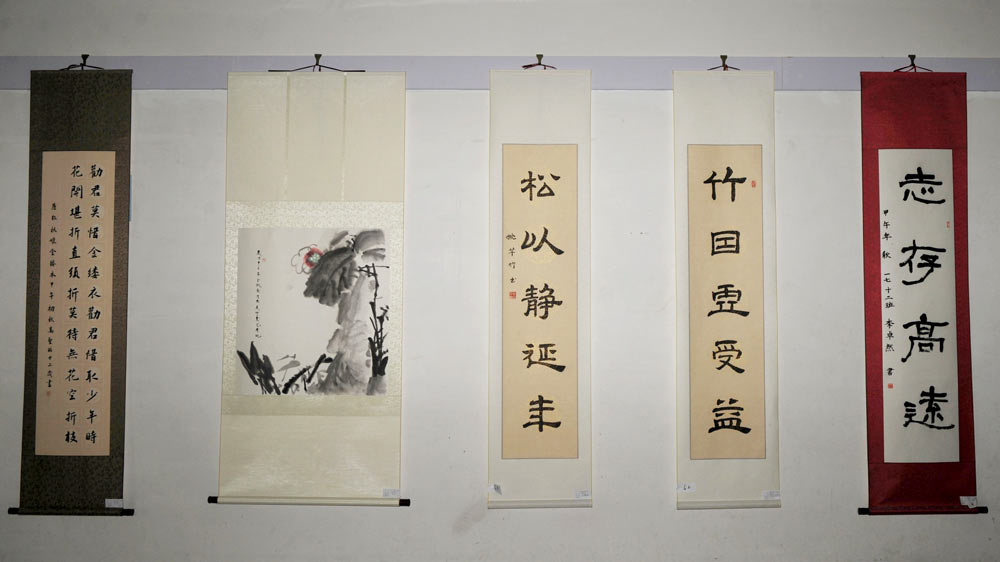 志存高遠
甲午年 秋 一七十二班 李卓然 書
竹因虛受益
松以静延年
姚芊竹書
勸君莫惜金縷衣勸君惜取少年時
花開堪折直須折莫待無花空折枝